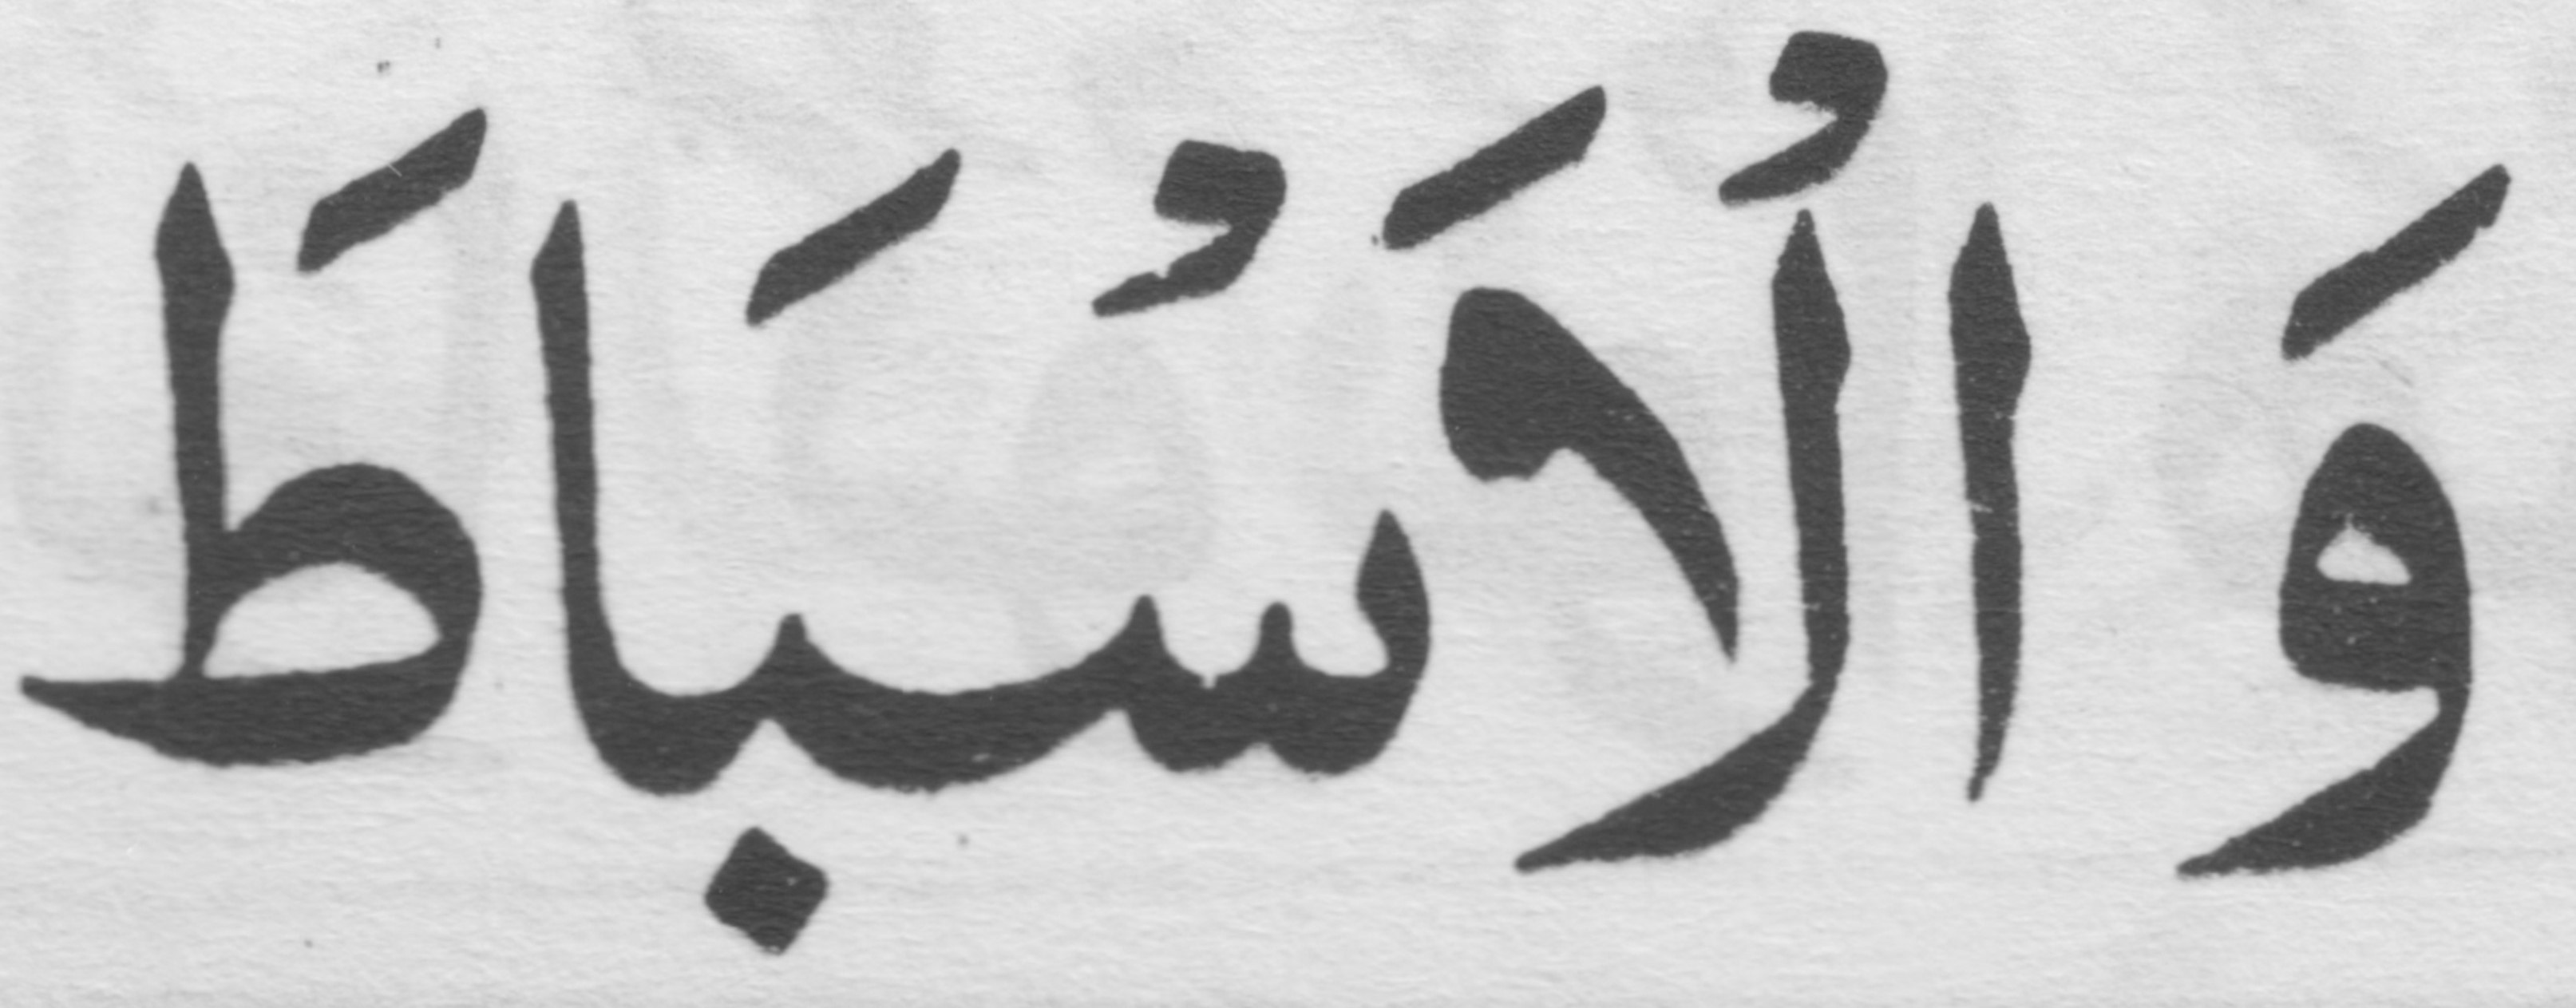 وَالْاَسْبَاطَ